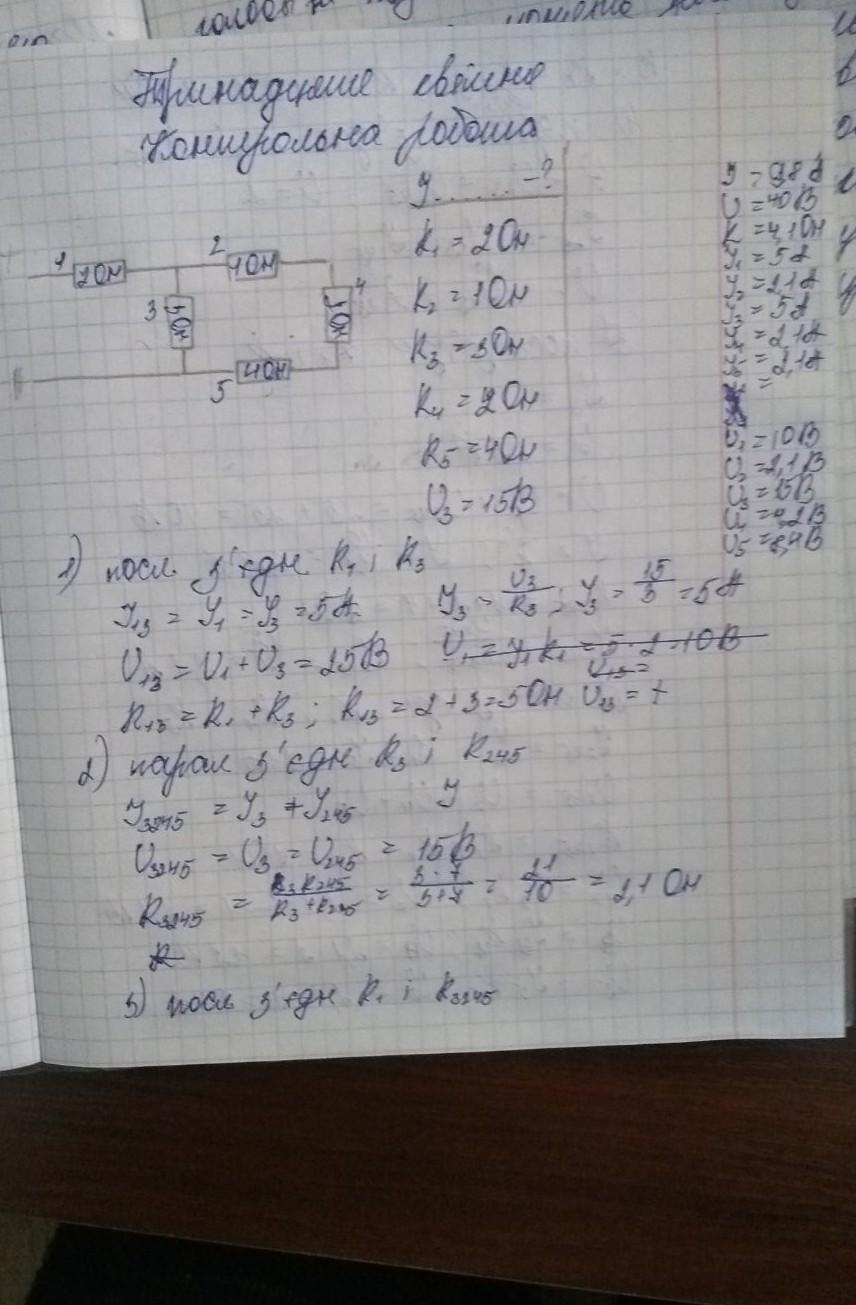 Тринадцяте квітня
Контрольна робота
I ...... -?
R₁ = 2Ом
R₂ = 1Ом
R₃ = 3Ом
R₄ = 2Ом
R₅ = 4Ом
U₃ = 15В
1 2Ом
2 1Ом
3
4
5 4Ом
U = 40В
R = 4,1Ом
I₁ = 5А
I₂ = 2,1А
I₃ = 5А
I₄ = 2,1А
I₅ = 2,1А
=
U₁ = 10В
U₂ = 2,1В
U₃ = 15В
U₄ = 4,2В
U₅ = 8,4В
1) посл з'єдн R₁ і R₃
I₁₃ = I₁ = I₃ = 5А I₃ = U₃/R₃; I₃ = 15/3 = 5А
U₁₃ = U₁ + U₃ = 25В U₁ = I₁R₁ = 5·2=10В
U₁₃ =
R₁₃ = R₁ + R₃; R₁₃ = 2+3=5Ом U₁₃ = I
2) парал з'єдн R₃ і R₂₄₅
I₃₂₄₅ = I₃ + I₂₄₅ I
U₃₂₄₅ = U₃ = U₂₄₅ = 15В
R₃₂₄₅ = R₃R₂₄₅/R₃+R₂₄₅ = 3·7/3+7 = 21/10 = 2,1 Ом
R
3) посл з'єдн R₁ і R₃₂₄₅